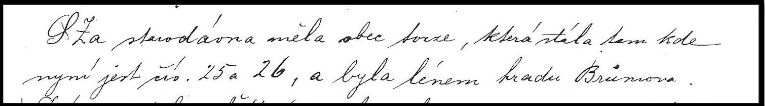 Za starodávna měla obec tvrze, která stála tam kde
nyní jest čís. 25 a 26, a byla lénem hradu Brůmova.